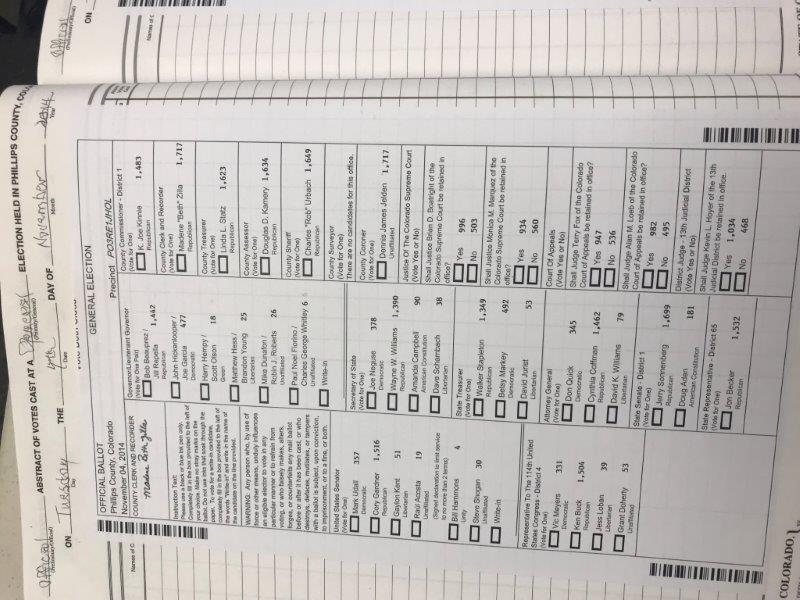 ABSTRACT OF VOTES CAST AT A General ELECTION HELD IN PHILLIPS COUNTY, COLO
ON Tuesday THE 4th DAY OF November 2014
OFFICIAL BALLOT
Phillips County, Colorado
November 04, 2014
COUNTY CLERK AND RECORDER
GENERAL ELECTION
Precinct
WARNING: Any person who, by use of
force or other means, unduly influences
an eligible elector to vote in any
particular manner or to refrain from
voting, or who falsely makes, alters,
forges, or counterfeits any mail ballot
before or after it has been cast, or who
destroys, defaces, mutilates, or tampers
with a ballot is subject, upon conviction,
to imprisonment, or to a fine, or both.
United States Senator
(Vote for One)
Mark Udall 357
Democratic
Cory Gardner 1,516
Republican
Gaylon Kent 51
Libertarian
Raúl Acosta 19
Unaffiliated
Bill Hammons 4
Unity
(Signed declaration to limit service
to no more than 2 terms)
Steve Shogan 30
Unaffiliated
Write-in
Representative To The 114th United
States Congress - District 4
(Vote for One)
Vic Meyers 331
Democratic
Ken Buck 1,504
Republican
Jess Loban 39
Libertarian
Grant Doherty 53
Unaffiliated
Governor/Lieutenant Governor
(Vote for One Pair)
Bob Beauprez / 1,442
Jill Repella
Republican
John Hickenlooper /
Joe Garcia 477
Democratic
Harry Hempy / 18
Scott Olson
Green
Matthew Hess / 25
Brandon Young
Libertarian
Mike Dunafon / 26
Robin J. Roberts
Unaffiliated
Paul Noel Fiorino /
Charles George Whitley 6
Unaffiliated
Write-in
Secretary of State
(Vote for One)
Joe Neguse 378
Democratic
Wayne W. Williams 1,390
Republican
Amanda Campbell 90
American Constitution
Dave Schambach 38
Libertarian
State Treasurer
(Vote for One)
Walker Stapleton 1,349
Republican
Betsy Markey 492
Democratic
David Jurist 53
Libertarian
Attorney General
(Vote for One)
Don Quick 345
Democratic
Cynthia Coffman 1,462
Republican
David K. Williams 79
Libertarian
State Senate - District 1
(Vote for One)
Jerry Sonnenberg 1,699
Republican
Doug Aden 181
American Constitution
State Representative - District 65
(Vote for One)
Jon Becker 1,532
Republican
County Commissioner - District 1
(Vote for One)
K. Joe Kinnie 1,483
Republican
County Clerk and Recorder
(Vote for One)
Madlene "Beth" Zilla 1,717
Republican
County Treasurer
(Vote for One)
Linda L. Statz 1,623
Republican
County Assessor
(Vote for One)
Douglas D. Kamery 1,634
Republican
County Sheriff
(Vote for One)
Charles "Rob" Urbach 1,649
Republican
County Surveyor
(Vote for One)
There are no candidates for this office.
County Coroner
(Vote for One)
Dennis James Jelden 1,717
Unaffiliated
Justice Of The Colorado Supreme Court
(Vote Yes or No)
Shall Justice Brian D. Boatright of the
Colorado Supreme Court be retained in
office?
Yes 996
No 503
Shall Justice Monica M. Marquez of the
Colorado Supreme Court be retained in
office?
Yes 934
No 560
Court Of Appeals
(Vote Yes or No)
Shall Judge Terry Fox of the Colorado
Court of Appeals be retained in office?
Yes 947
No 536
Shall Judge Alan M. Loeb of the Colorado
Court of Appeals be retained in office?
Yes 982
No 495
District Judge - 13th Judicial District
(Vote Yes or No)
Shall Judge Kevin L. Hoyer of the 13th
Judicial District be retained in office?
Yes 1,034
No 468
Names of C
COLORADO,